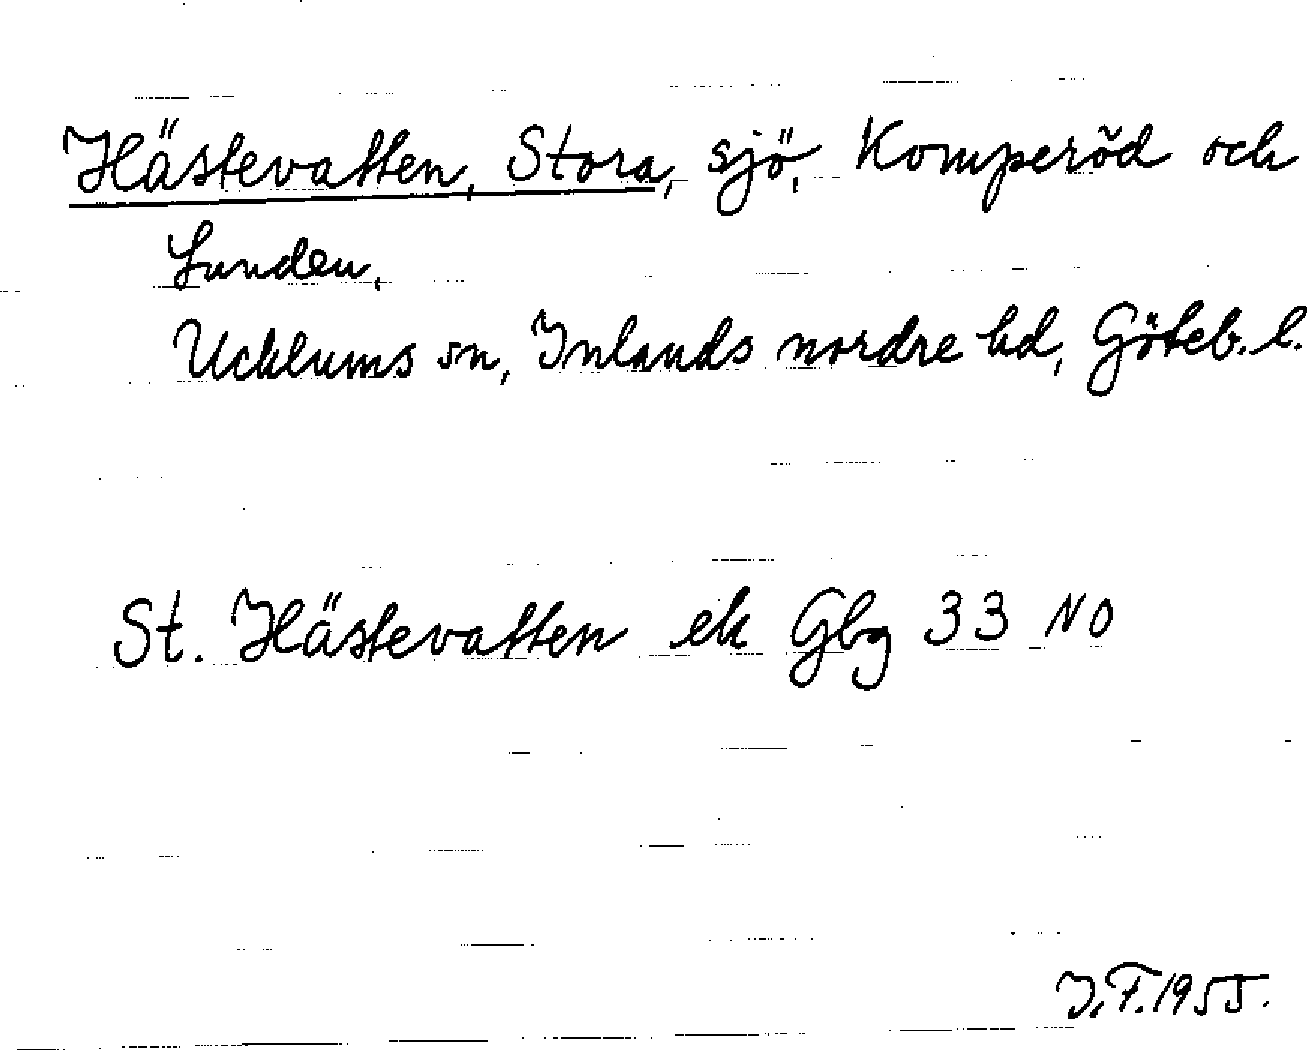 Hästevatten, Stora, sjö, Komperöd och
Lunden,
Ucklums sn, Inlands nordre hd, Göteb. l.
St. Hästevatten ek Gbg 33 NO
I.F. 1955.